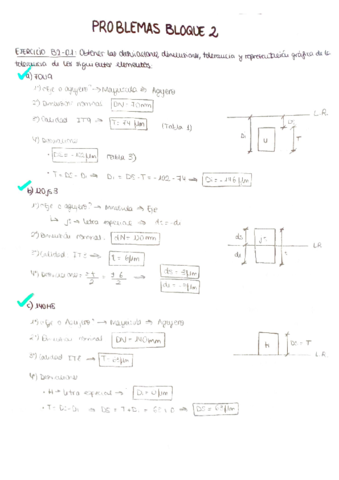 PROBLEMAS BLOQUE 2
EJERCICIO B2-01: Obtener las desviaciones, dimensiones, tolerancia y representación gráfica de la
tolerancia de los siguientes elementos.
a) 70U9
1) ¿Eje o agujero? → Mayúscula → Agujero
2) Dimensión nominal DN = 70mm
3) Calidad IT9 → T = 74 μm (Tabla 1)
4) Desviaciones
• Ds = -102 μm (Tabla 3)
• T = Ds - Di → Di = Ds - T = -102 - 74 → Di = -176 μm
L.R.
Di
Ds
T
U
b) 120js3
1) ¿Eje o agujero? → Minúscula → Eje
↳ js → letra especial → ds = -di
2) Dimensión nominal: dN = 120mm
3) Calidad: → t = 6 μm
4) Desviaciones = ± t/2 = ± 6/2 → ds = 3 μm
di = -3 μm
ds
di
js
L.R.
1) ¿Eje o Agujero? → Mayúscula → Agujero
2) Dimensión nominal →
3) Calidad
4) Desviaciones
• H → letra especial → Di = 0 μm
• T = Ds - Di → Ds = T + Di
h
Ds = T
L.R.